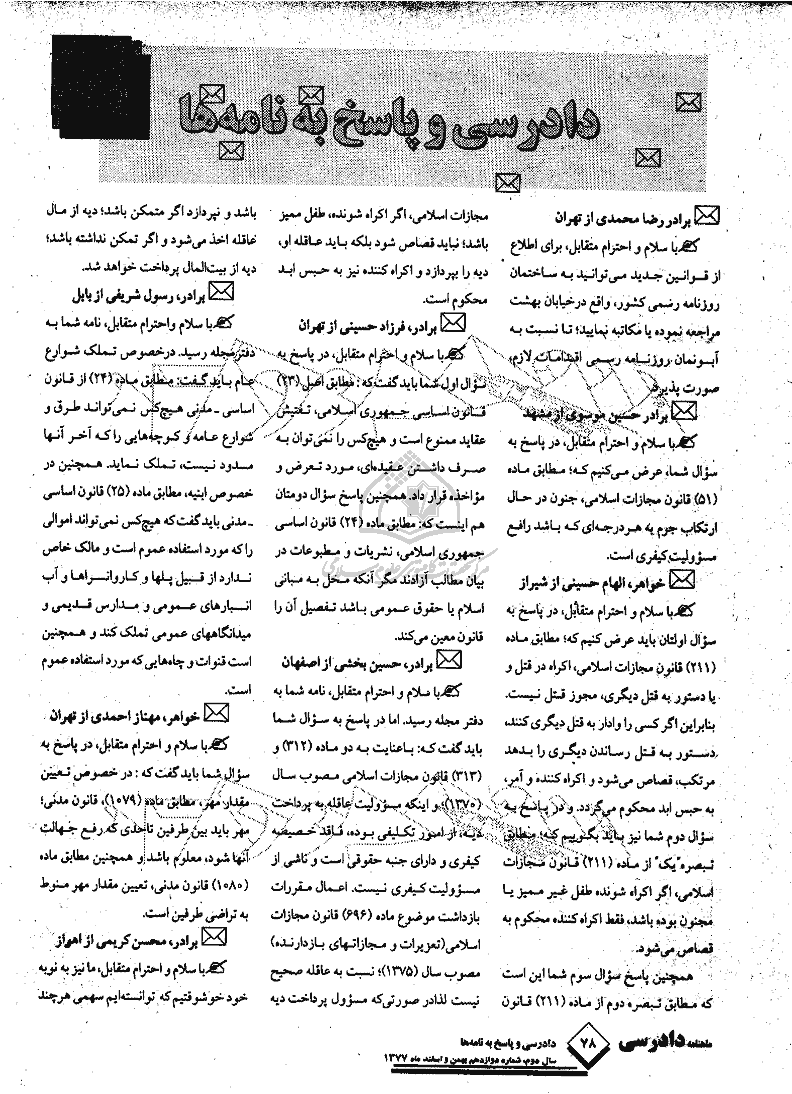 دادرسی و پاسخ به نامه‌ها
برادر رضا محمدی از تهران
با سلام و احترام متقابل، برای اطلاع
از قوانین جدید می‌توانید به ساختمان
روزنامه رسمی کشور، واقع در خیابان بهشت
مراجعه نموده یا مکاتبه نمایید؛ تا نسبت به
آبونمان روزنامه رسمی اقدامات لازم،
صورت پذیرد.
برادر حسین موسوی از مشهد
با سلام و احترام متقابل، در پاسخ به
سؤال شما، عرض می‌کنیم که؛ مطابق ماده
(۵۱) قانون مجازات اسلامی، جنون در حال
ارتکاب جرم به هر درجه‌ای که باشد رافع
مسؤولیت کیفری است.
خواهر، الهام حسینی از شیراز
با سلام و احترام متقابل، در پاسخ به
سؤال اولتان باید عرض کنیم که؛ مطابق ماده
(۲۱۱) قانون مجازات اسلامی، اکراه در قتل و
یا دستور به قتل دیگری، مجوز قتل نیست.
بنابراین اگر کسی را وادار به قتل دیگری کنند،
دستور به قتل رساندن دیگری را بدهد
مرتکب، قصاص می‌شود و اکراه کننده و آمر،
به حبس ابد محکوم می‌گردد. و در پاسخ به
سؤال دوم شما نیز باید بگوییم که؛ مطابق
تبصره "یک" از ماده (۲۱۱) قانون مجازات
اسلامی، اگر اکراه شونده طفل غیر ممیز یا
مجنون بوده باشد، فقط اکراه کننده محکوم به
قصاص می‌شود.
همچنین پاسخ سؤال سوم شما این است
که مطابق تبصره دوم از ماده (۲۱۱) قانون
مجازات اسلامی، اگر اکراه شونده، طفل ممیز
باشد؛ نباید قصاص شود بلکه باید عاقله او،
دیه را بپردازد و اکراه کننده نیز به حبس ابد
محکوم است.
برادر، فرزاد حسینی از تهران
با سلام و احترام متقابل، در پاسخ به
سؤال اول شما باید گفت که: مطابق اصل (۲۳)
قانون اساسی جمهوری اسلامی، تفتیش
عقاید ممنوع است و هیچ‌کس را نمی‌توان به
صرف داشتن عقیده‌ای، مورد تعرض و
مؤاخذه قرار داد. همچنین پاسخ سؤال دومتان
هم اینست که: مطابق ماده (۲۴) قانون اساسی
جمهوری اسلامی، نشریات و مطبوعات در
بیان مطالب آزادند مگر آنکه مخل به مبانی
اسلام یا حقوق عمومی باشد تفصیل آن را
قانون معین می‌کند.
برادر، حسین بخشی از اصفهان
با سلام و احترام متقابل، نامه شما به
دفتر مجله رسید. اما در پاسخ به سؤال شما
باید گفت که: باعنایت به دو ماده (۳۱۲) و
(۳۱۳) قانون مجازات اسلامی مصوب سال
(۱۳۷۰)؛ و اینکه مسؤولیت عاقله به پرداخت
دیه، از امور تکلیفی بوده، فاقد خصیصه
کیفری و دارای جنبه حقوقی است و ناشی از
مسؤولیت کیفری نیست. اعمال مقررات
بازداشت موضوع ماده (۶۹۶) قانون مجازات
اسلامی (تعزیرات و مجازاتهای بازدارنده)
مصوب سال (۱۳۷۵)؛ نسبت به عاقله صحیح
نیست لذا در صورتی‌که مسؤول پرداخت دیه
باشد و نپردازد اگر متمکن باشد؛ دیه از مال
عاقله اخذ می‌شود و اگر تمکن نداشته باشد؛
دیه از بیت‌المال پرداخت خواهد شد.
برادر، رسول شریفی از بابل
با سلام واحترام متقابل، نامه شما به
دفتر مجله رسید. درخصوص تملک شوارع
عام باید گفت: مطابق ماده (۲۴) از قانون
اساسی ـ مدنی هیچ‌کس نمی‌تواند طرق و
شوارع عامه و کوچه‌هایی را که آخر آنها
مسدود نیست، تملک نماید. همچنین در
خصوص ابنیه، مطابق ماده (۲۵) قانون اساسی
ـ مدنی باید گفت که هیچ‌کس نمی‌تواند اموالی
را که مورد استفاده عموم است و مالک خاص
ندارد از قبیل پلها و کاروانسراها و آب
انبارهای عمومی و مدارس قدیمی و
میدانگاههای عمومی تملک کند و همچنین
است قنوات و چاه‌هایی که مورد استفاده عموم
است.
خواهر، مهناز احمدی از تهران
با سلام و احترام متقابل، در پاسخ به
سؤال شما باید گفت که: در خصوص تعیین
مقدار مهر، مطابق ماده (۱۰۷۹)، قانون مدنی؛
مهر باید بین طرفین تاحدی که رفع جهالت
آنها شود، معلوم باشد و همچنین مطابق ماده
(۱۰۸۰) قانون مدنی، تعیین مقدار مهر منوط
به تراضی طرفین است.
برادر، محسن کریمی از اهواز
با سلام و احترام متقابل، ما نیز به نوبه
خود خوشوقتیم که توانسته‌ایم سهمی هرچند
ماهنامه دادرسی
۷۸
دادرسی و پاسخ به نامه‌ها
سال دوم، شماره دوازدهم بهمن و اسفند ماه ۱۳۷۷